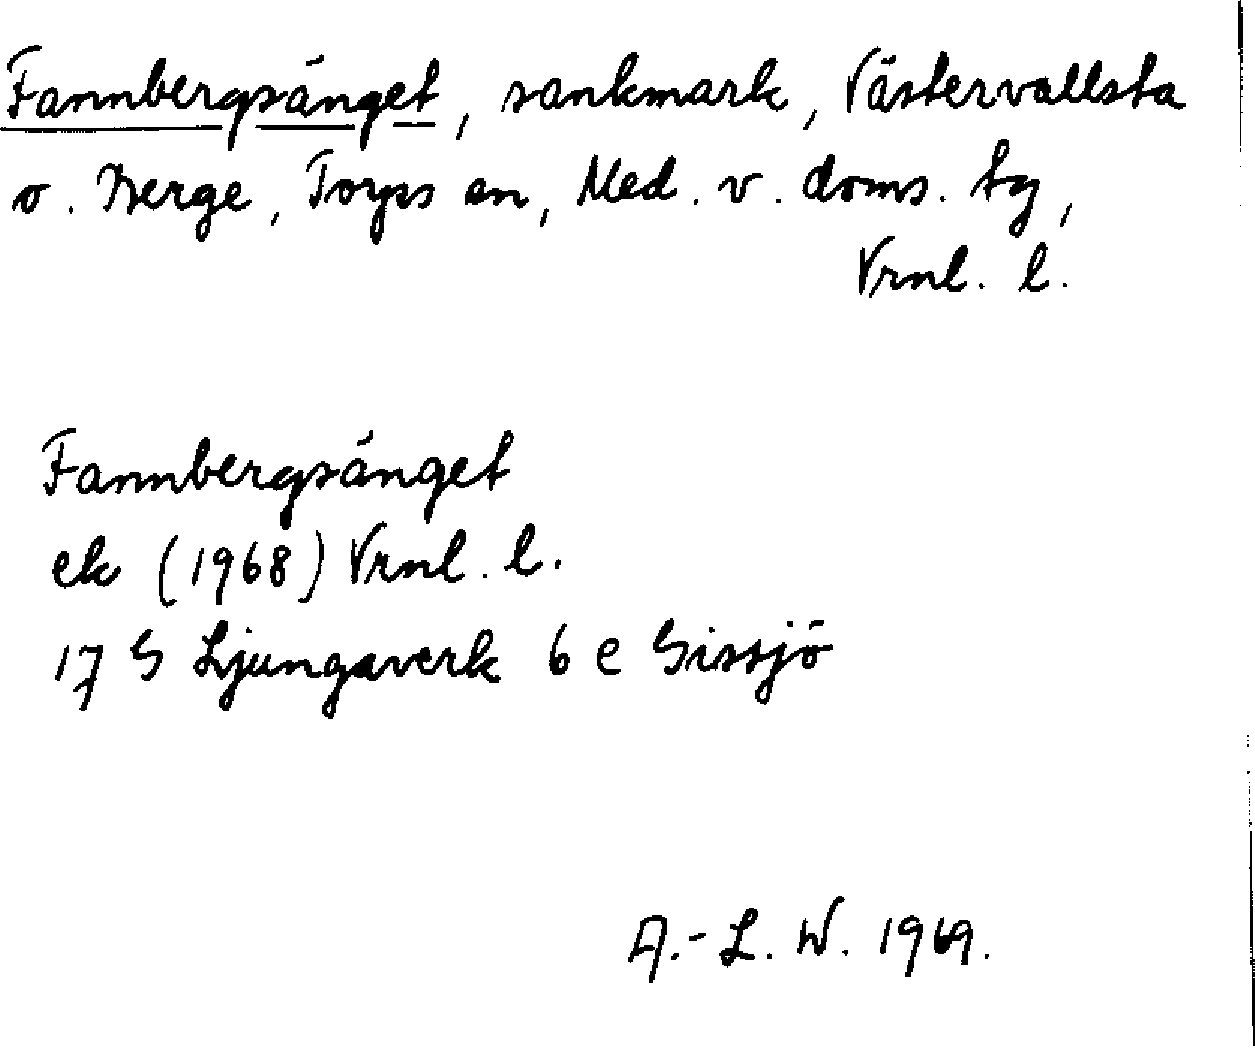 Fannbergsänget, sankmark, Västervallsta
o. Berge, Torps sn, Med. v. doms. tg,
Vrnl. l.
Fannbergsänget
ek (1968) Vrnl. l.
17 G Ljungaverk 6 e Gissjö
A.-L. W. 1969.